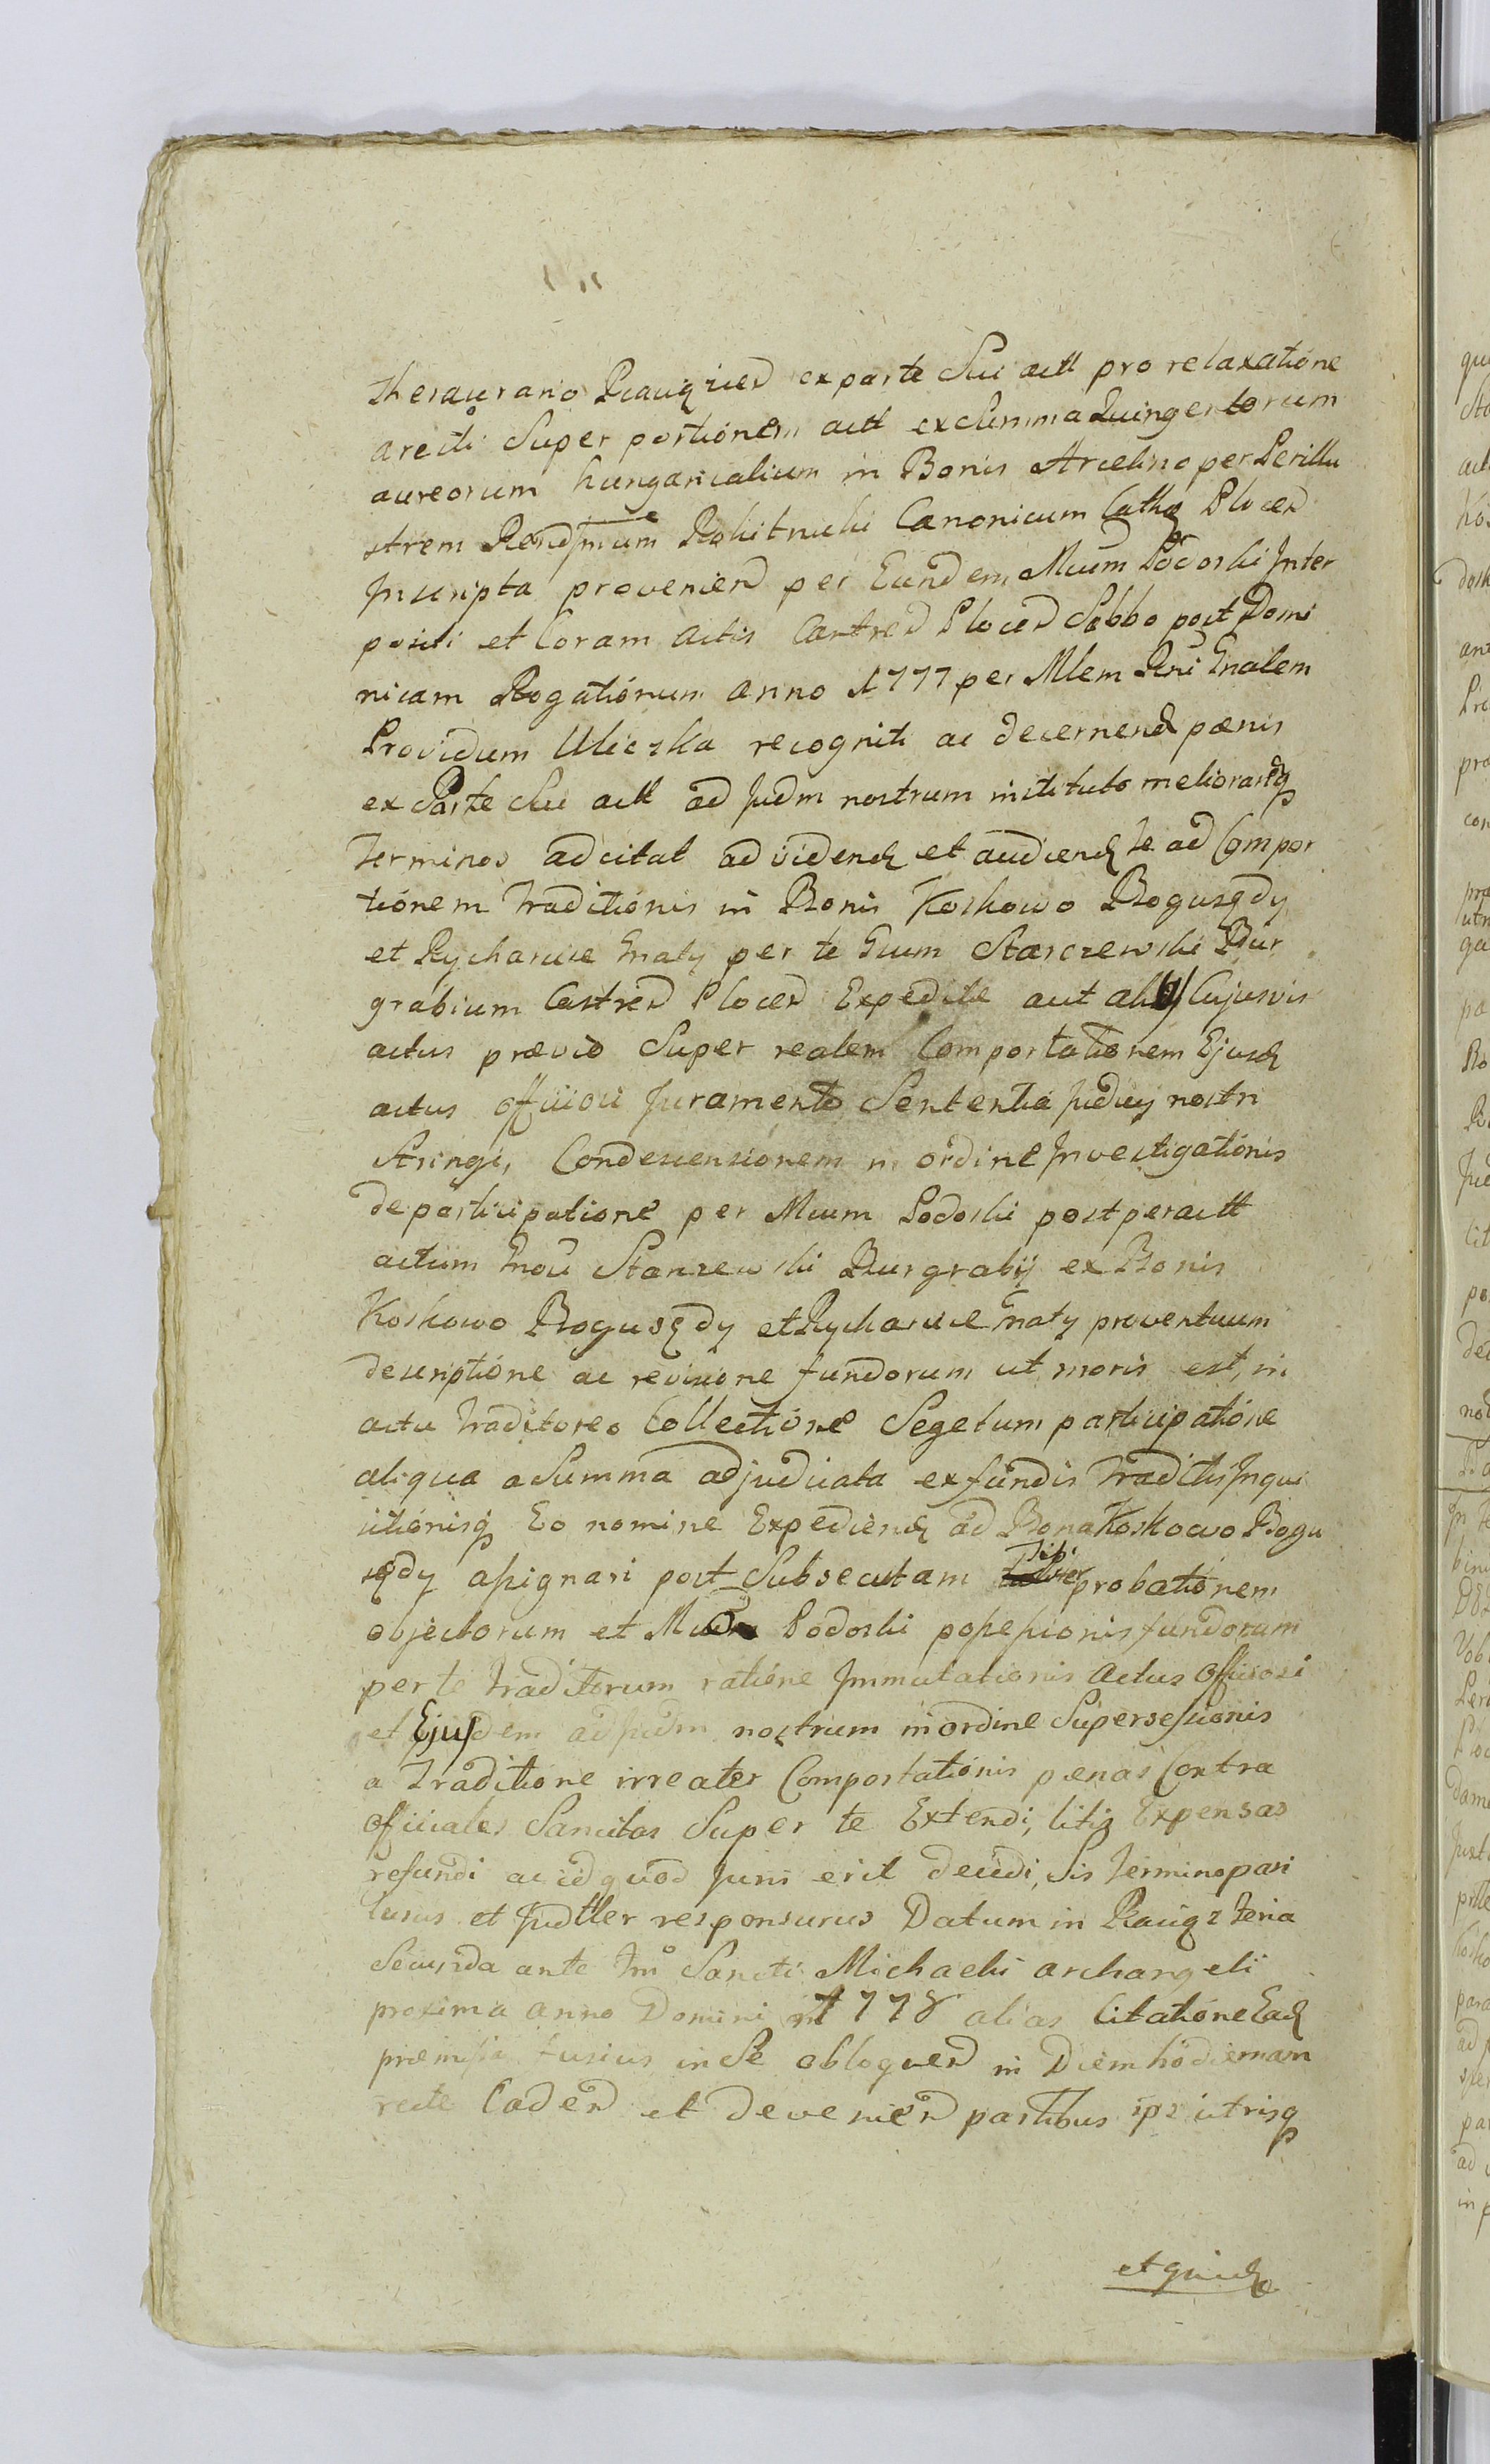 thesaurario Raciąz ien ex parte Sui actt pro relaxatione
aresti Super portionem actt ex Summa Quingentorum
aureorum hungaricalium in Bonis Arcelino per Perillu
strem Rendssimum Rokitnicki Canonicum Cathq Plocen
Inscripta provenien per Eundem Mcum Podoski Inter
positi et Coram actis Castren Plocen Sabbo post Domi
nicam Rogationum anno 1777 per Mlem Rni Gnalem
Providum Uliczka recogniti ac decernend pœnis
ex Parte Sui actt ad Judm nostrum instituto meliorandq
Terminos adcitat ad videnđ et audienđ te ad Compor
tionem Traditionis in Bonis Koskowo Bogusędy
et Rycharcice Gnaty per te Gnum Starczewski Bur
grabium Castren Plocen Expeditæ aut alij Cujusvis
actus prævio Super realem Comportationem Ejusđ
actus officiosi Juramento Sententia Judicij nostri
Stringi, Condescensionem in ordine Investigationis
de participatione per Mcum Podoski post peractt
actum Gnosi Starczewski Burgrabij ex Bonis
Koskowo Bogusędy et Rycharcice Gnaty proventuum
descriptione ac revisione fundorum ut moris est, in
actu Traditoreo Collectione Segetum participatione
aliqua a Summa adjudicata ex fundis Traditis Inqui
sitionisq Eo nomine Expedienđ ad Bona Koskowo Bogu
sędy assignari post Subsecutam Tibi probationem
objectorum et Podoski possessionis fundorum
per te Traditorum ratione Immutationis actus officiosi
et Ejusdem ad Judm nostrum in ordine Supersessionis
a Traditione irreater Comportationis pœnas Contra
officiales Sancitas Super te Extendi, litis Expensas
refundi ac id quod Juris erit decidi, Sis Termino pari
turus et Judtler responsurus Datum in Raciąz feria
Secunda ante Sancti Michaelis archangeli
proxima anno Domini 1778 alias Citatione Eađ
præmissa fusius in Se obloquen in Diem hodiernam
recte Caden et devenien partibus ips utrisq
et quidem